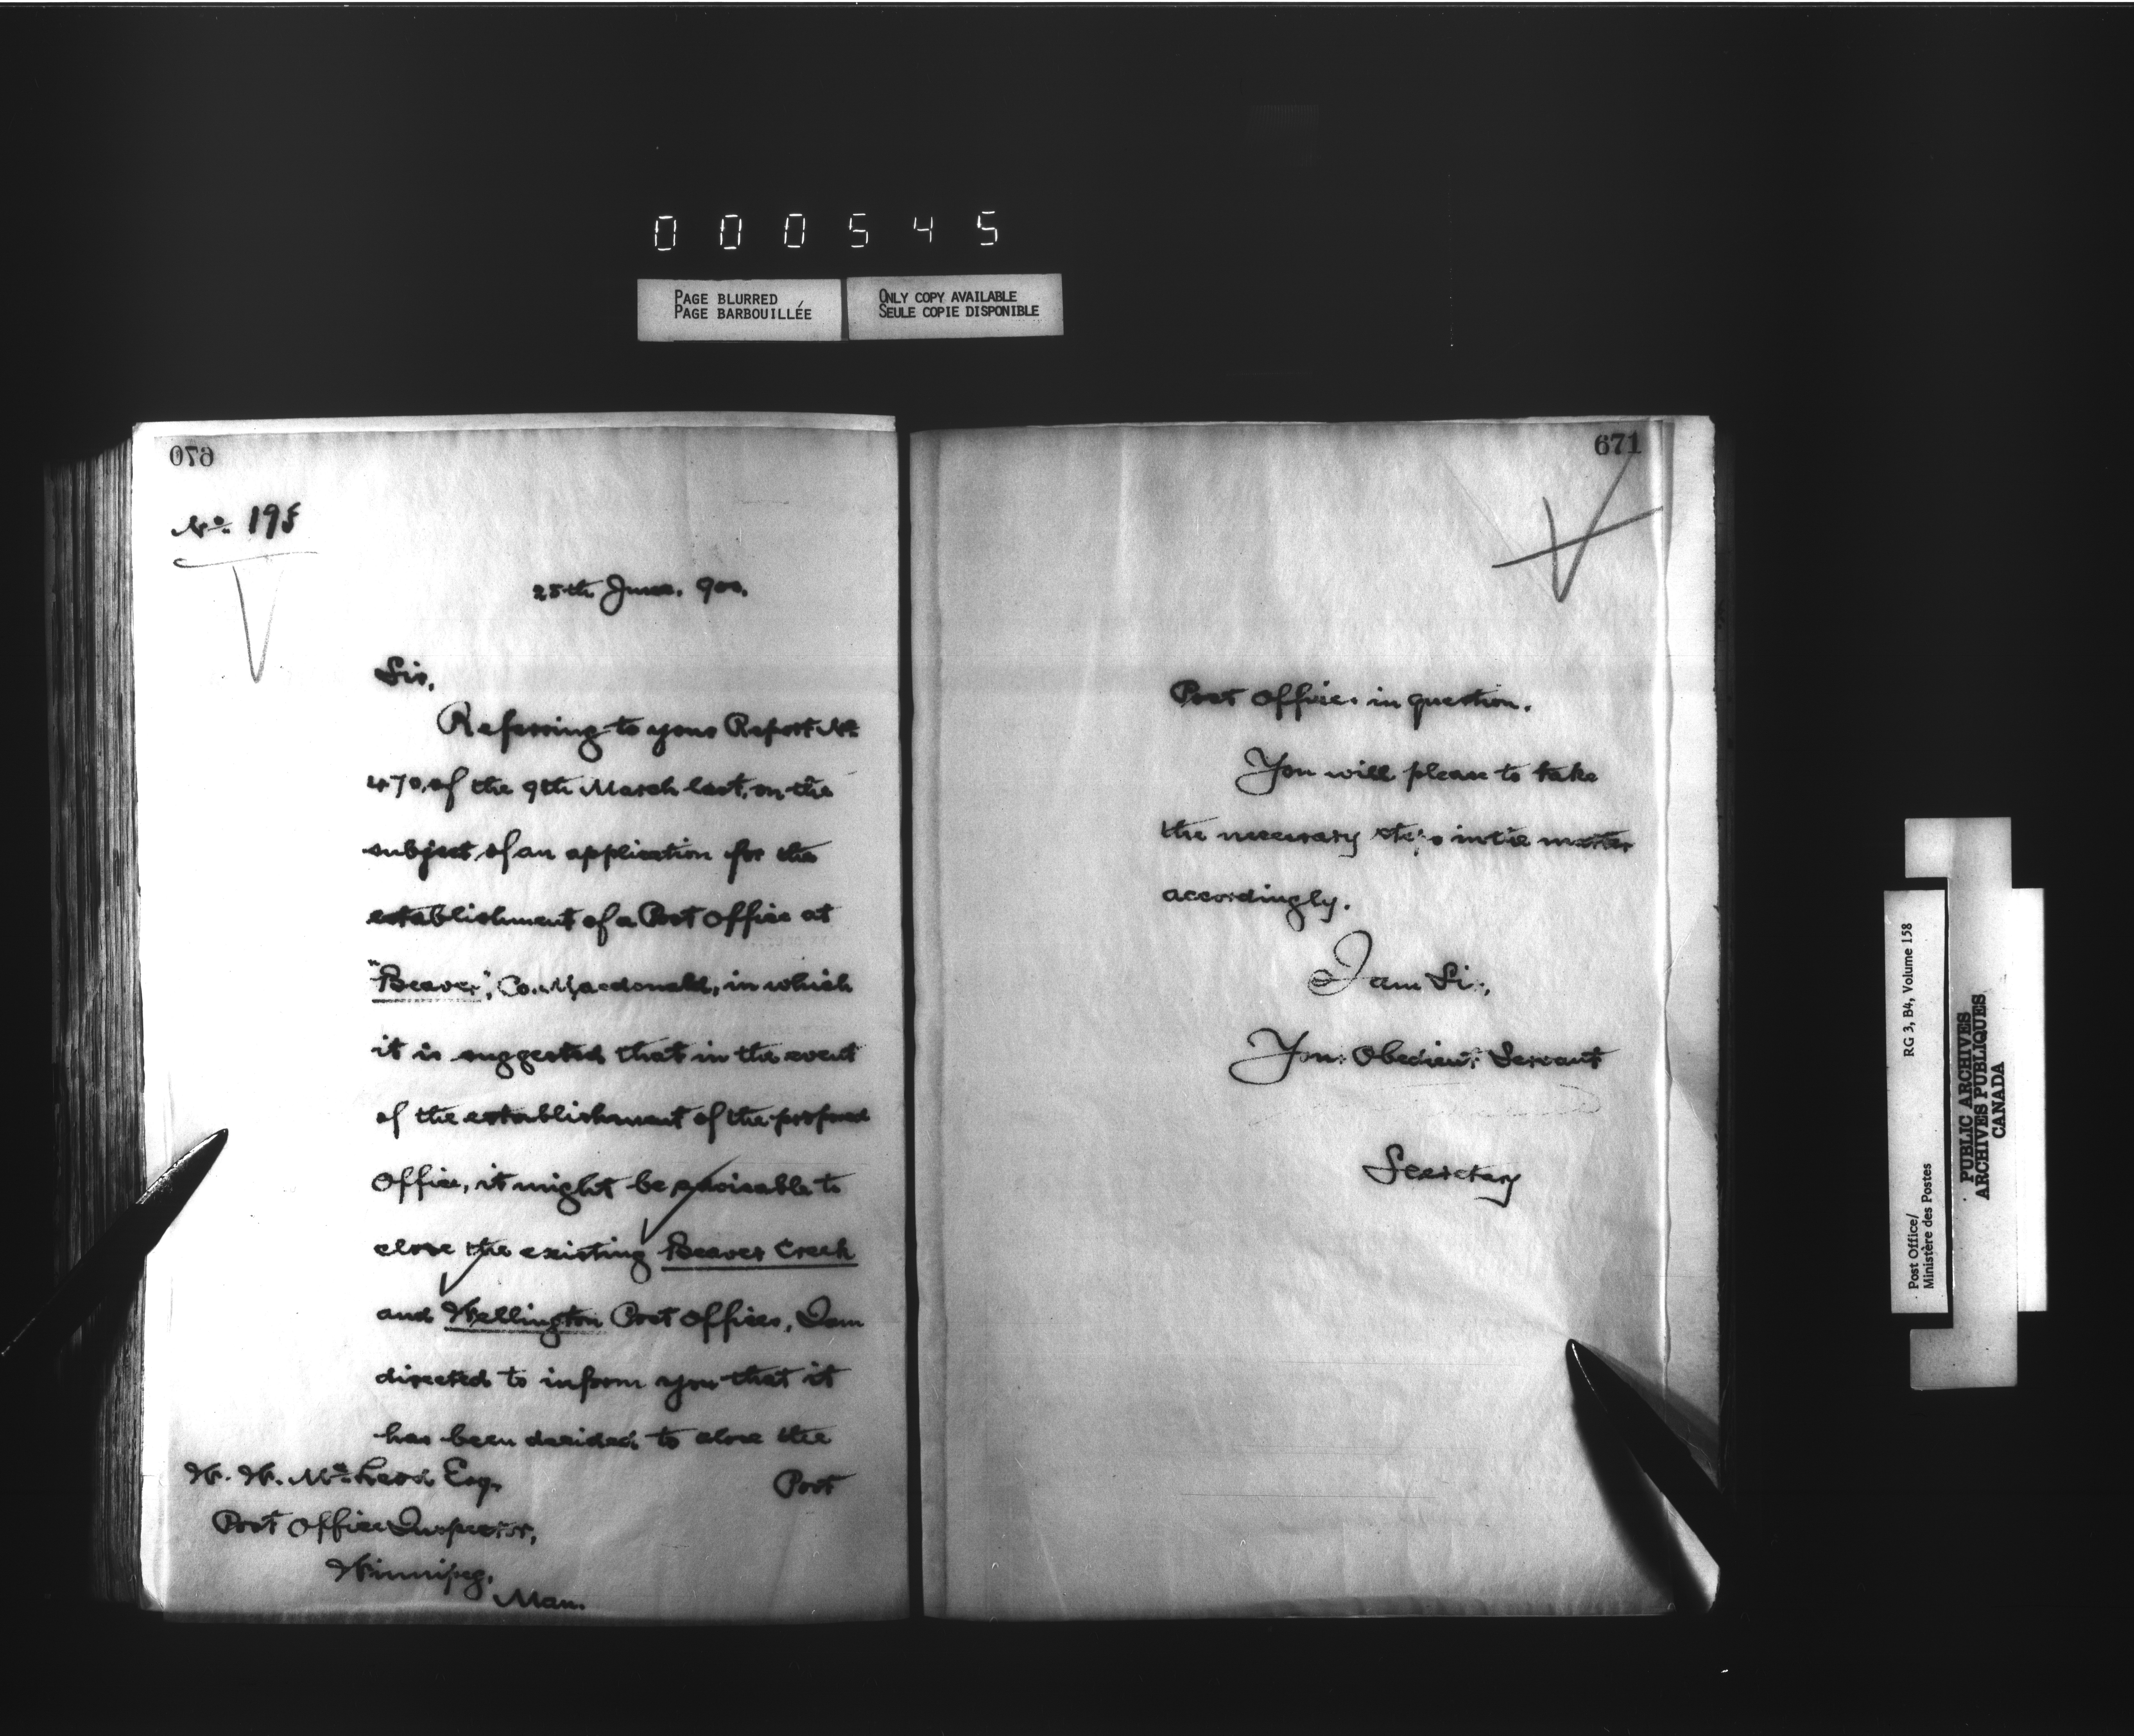 000545
PAGE BLURRED
PAGE BARBOUILLÉE
ONLY COPY AVAILABLE
SEULE COPIE DISPONIBLE
670
No. 195
25th June. 900.
Sir,
Referring to your Report No.
470, of the 9th March last, on the
subject of an application for the
establishment of a Post Office at
"Beaver", Co. Macdonald, in which
it is suggested that in the event
of the establishment of the proposed
Office, it might be advisable to
close the existing Beaver Creek
and Wellington Post Offices, I am
directed to inform you that it
has been decided to close the
Post
W. W. McLeod Esq.
Post Office Inspector,
Winnipeg,
Man.
671
Post Offices in question.
You will please to take
the necessary steps in the matter
accordingly.
I am Sir,
Your Obedient Servant
Secretary
Post Office/
Ministère des Postes
RG 3, B4, Volume 158
PUBLIC ARCHIVES
ARCHIVES PUBLIQUES
CANADA